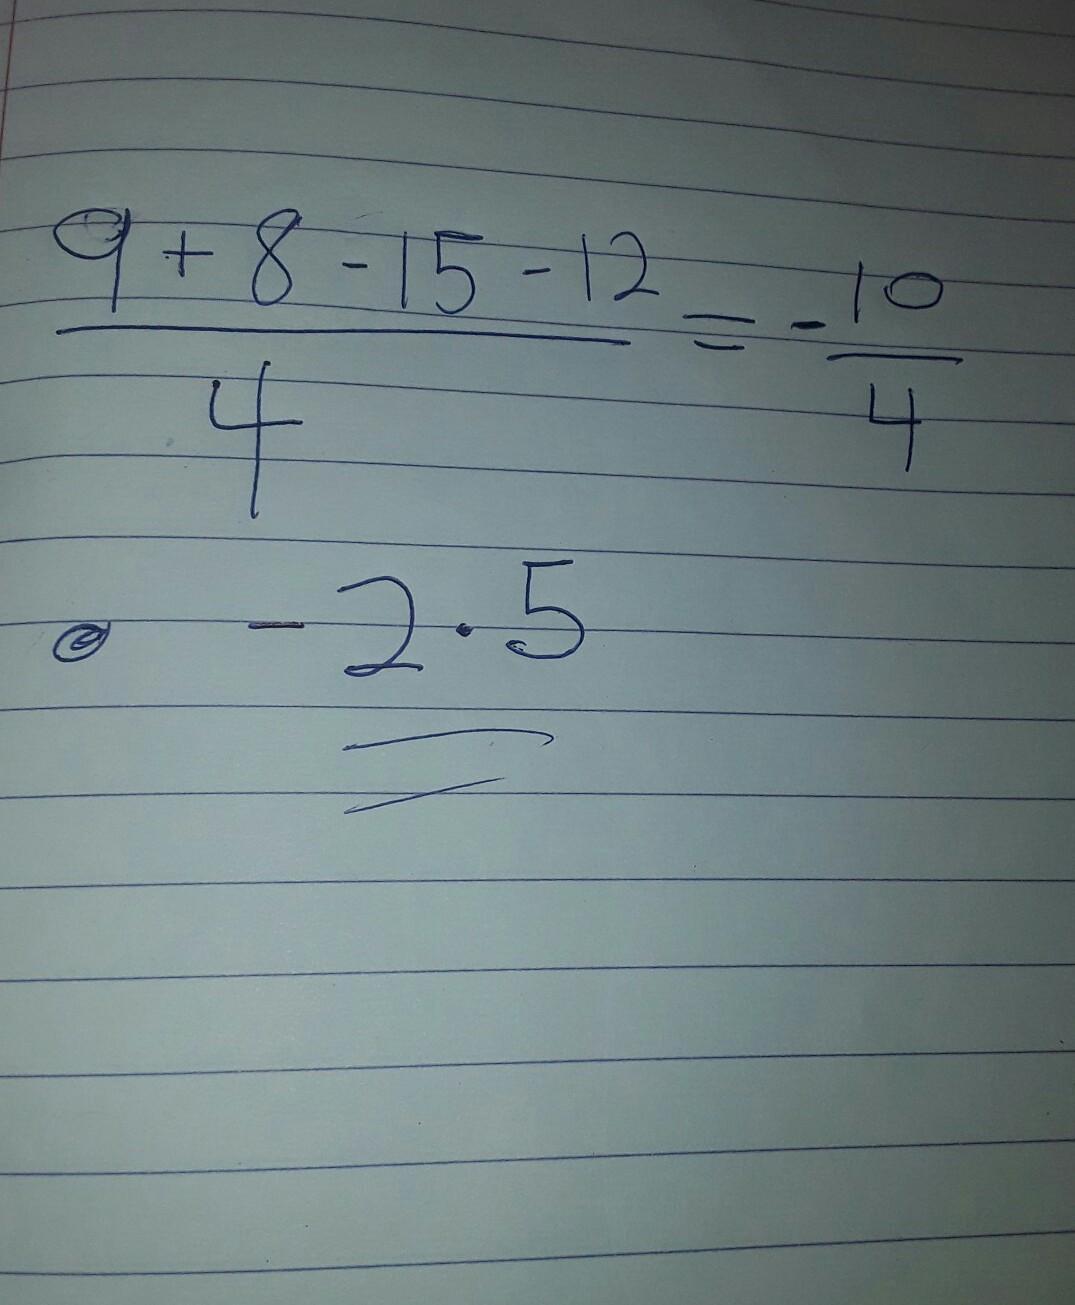 9 + 8 - 15 - 12 = - 10
4 4
- 2.5